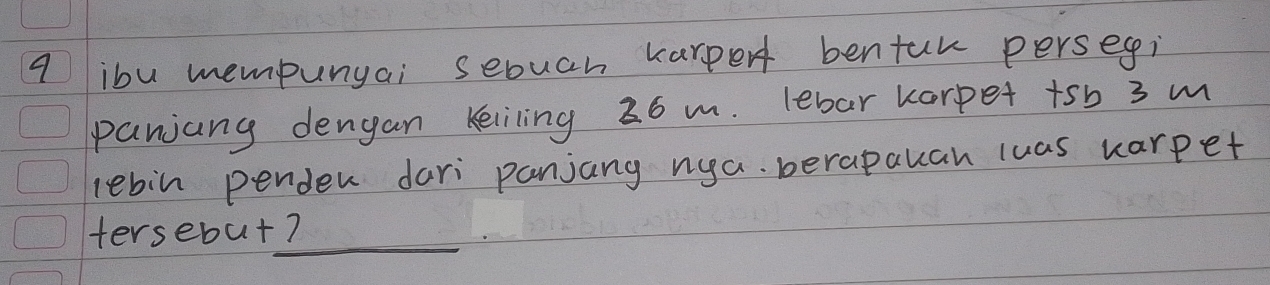 9 ibu mempunyai sebuah karpet bentuk persegi
panjang dengan keliling 26 m. lebar karpet tsb 3 m
lebih pendek dari panjang nya. berapakah luas karpet
tersebut? ______.